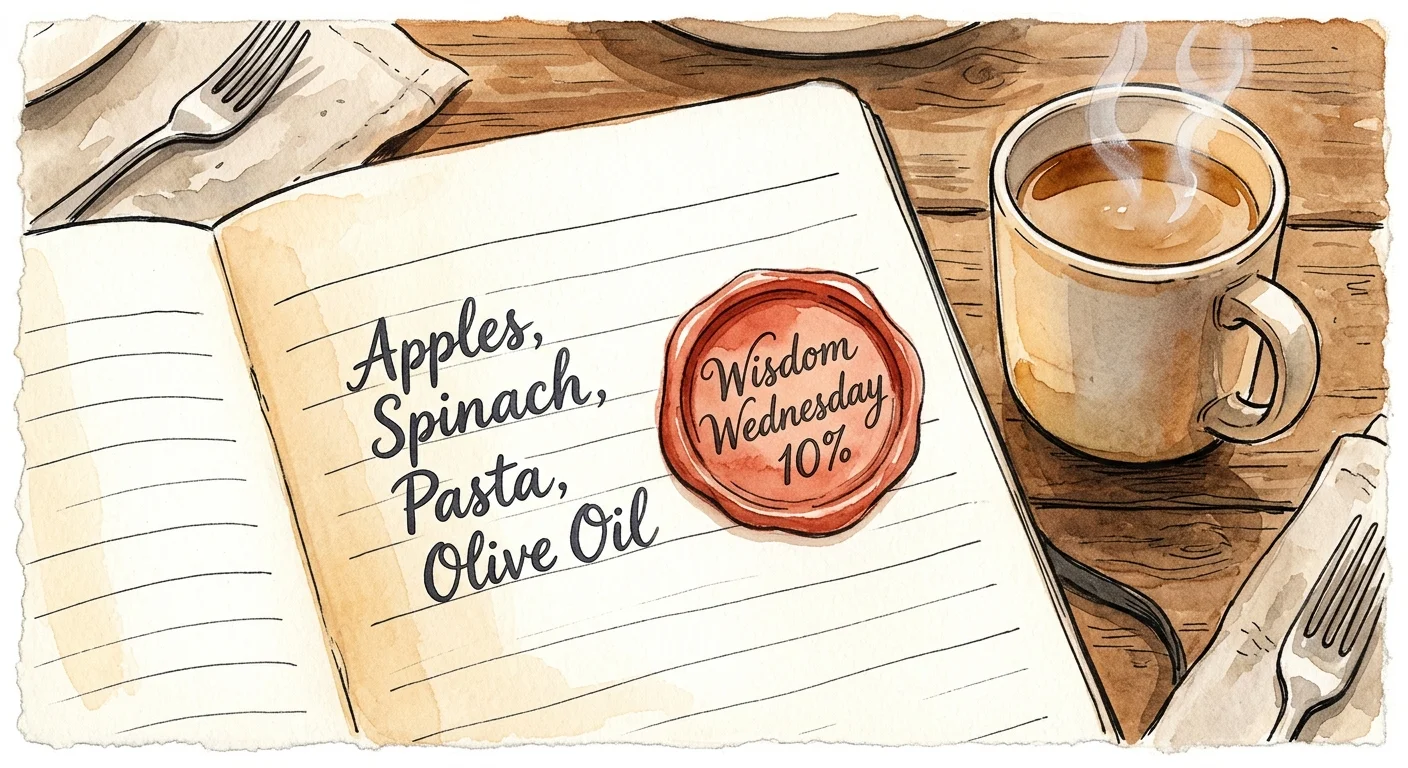 Apples,
Spinach,
Pasta,
Olive Oil
Wisdom
Wednesday
10%